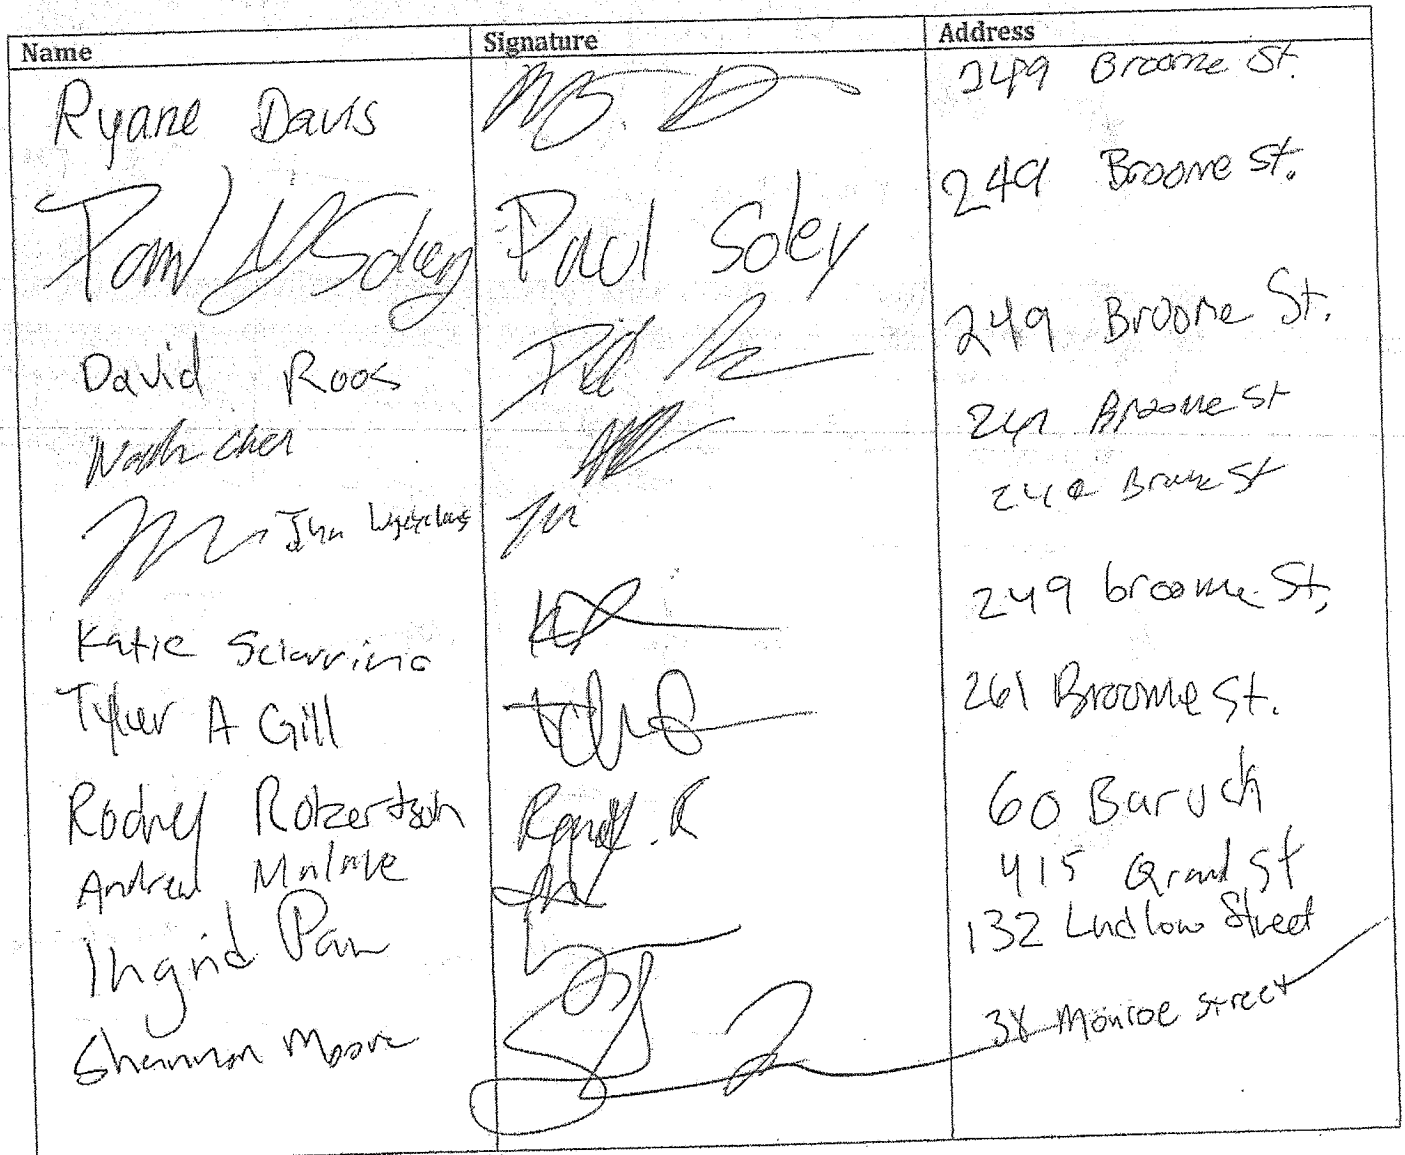 Name Signature Address
Ryane Davis 249 Broome St.
Paul Soley Paul Soley 249 Broome St.
David Roos 249 Broome St.
Chen Broome St
John St
Katie Sciarrino 249 broome St,
Tyler A Gill 261 Broome St.
Rodney Robertson R 60 Baruch
Andrew 415 Grand St
Ingrid Pan 132 Ludlow Street
Shannon Moore 38 Monroe Street